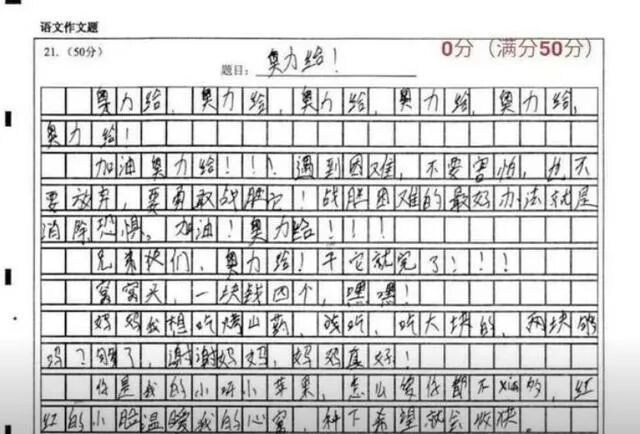 语文作文题
21. (50分)
题目: 奥力给!
0分 (满分50分)
奥力给, 奥力给, 奥力给, 奥力给, 奥力给,
奥力给!
加油奥力给!!! 遇到困难, 不要害怕, 也不
要放弃, 要勇敢战胜它! 战胜困难的最好办法就是
消除恐惧。加油! 奥力给!!!!
兄弟们, 奥力给! 干它就完了!!!
窝窝头, 一块钱四个, 嘿嘿!
妈妈我想吃烤山药, 吃吃, 吃大块的, 两块够
吗? 够了, 谢谢妈妈, 妈妈真好!
你是我的小呀小苹果, 怎么爱你都不xian的, 红
红的小脸温暖我的心窝, 种下希望就会收获。